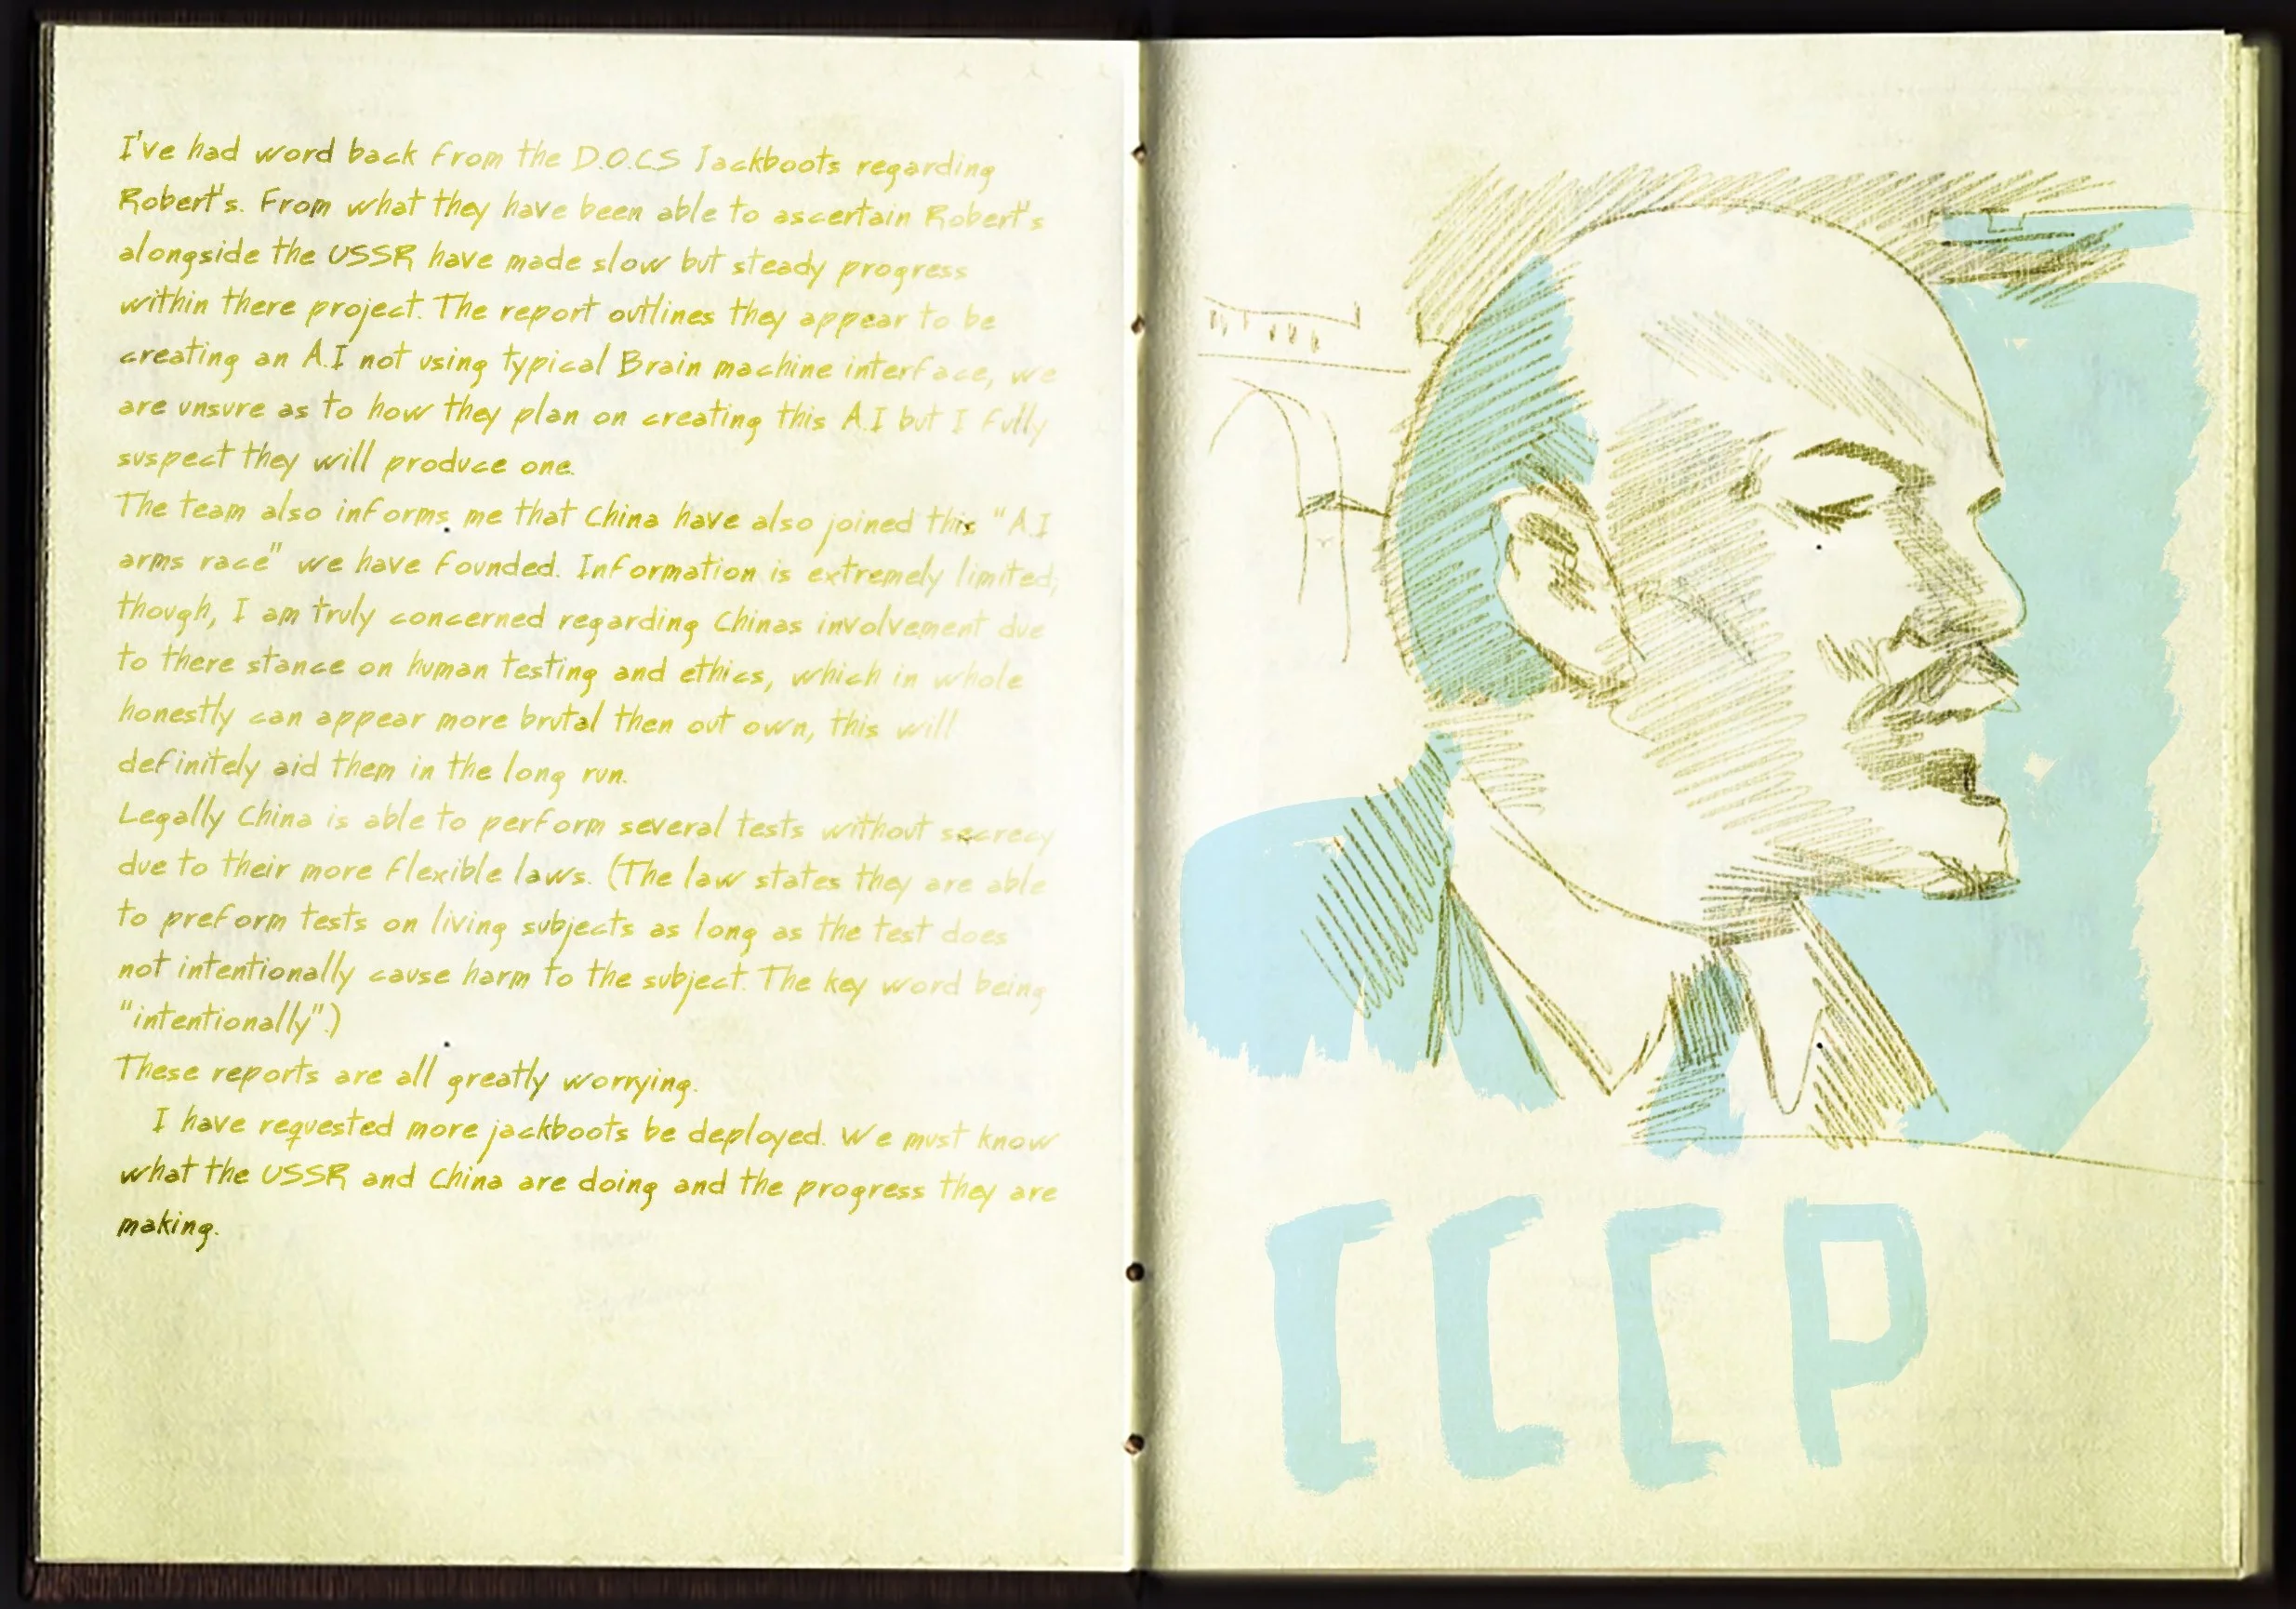 I've had word back from the D.O.C.S Jackboots regarding
Robert's. From what they have been able to ascertain Robert's
alongside the USSR have made slow but steady progress
within there project. The report outlines they appear to be
creating an A.I not using typical Brain machine interface, we
are unsure as to how they plan on creating this A.I but I fully
suspect they will produce one.
The team also informs me that China have also joined this "A.I
arms race" we have founded. Information is extremely limited,
though, I am truly concerned regarding Chinas involvement due
to there stance on human testing and ethics, which in whole
honestly can appear more brutal then out own, this will
definitely aid them in the long run.
Legally China is able to perform several tests without secrecy
due to their more flexible laws. (The law states they are able
to preform tests on living subjects as long as the test does
not intentionally cause harm to the subject. The key word being
"intentionally".)
These reports are all greatly worrying.
I have requested more jackboots be deployed. We must know
what the USSR and China are doing and the progress they are
making.
СССР